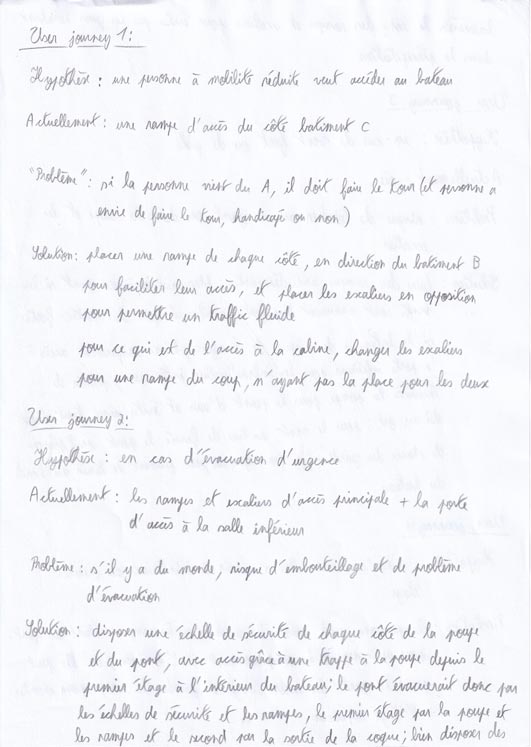 User journey 1:
Hypothèse : une personne à mobilité réduite veut accéder au bateau
Actuellement : une rampe d'accès du côté batiment C
"Problème" : si la personne vient du A, il doit faire le tour (et personne a
envie de faire le tour, handicapé ou non)
Solution : placer une rampe de chaque côté, en direction du batiment B
pour faciliter leur accès, et placer les escaliers en opposition
pour permettre un traffic fluide
pour ce qui et de l'accès à la cabine, changer les escaliers
pour une rampe du coup, n'ayant pas la place pour les deux
User journey 2:
Hypothèse : en cas d'évacuation d'urgence
Actuellement : les rampes et escaliers d'accès principale + la porte
d'accès à la salle inférieur
Problème : s'il y a du monde, risque d'embouteillage et de problème
d'évacuation
Solution : disposer une échelle de sécurité de chaque côté de la poupe
et du pont, avec accès grâce à une trappe à la poupe depuis le
premier étage à l'intérieur du bateau; le pont évacuerait donc par
les échelles de sécurité et les rampes, le premier étage par la poupe et
les rampes et le second par la sortie de la coque; bien disposer des